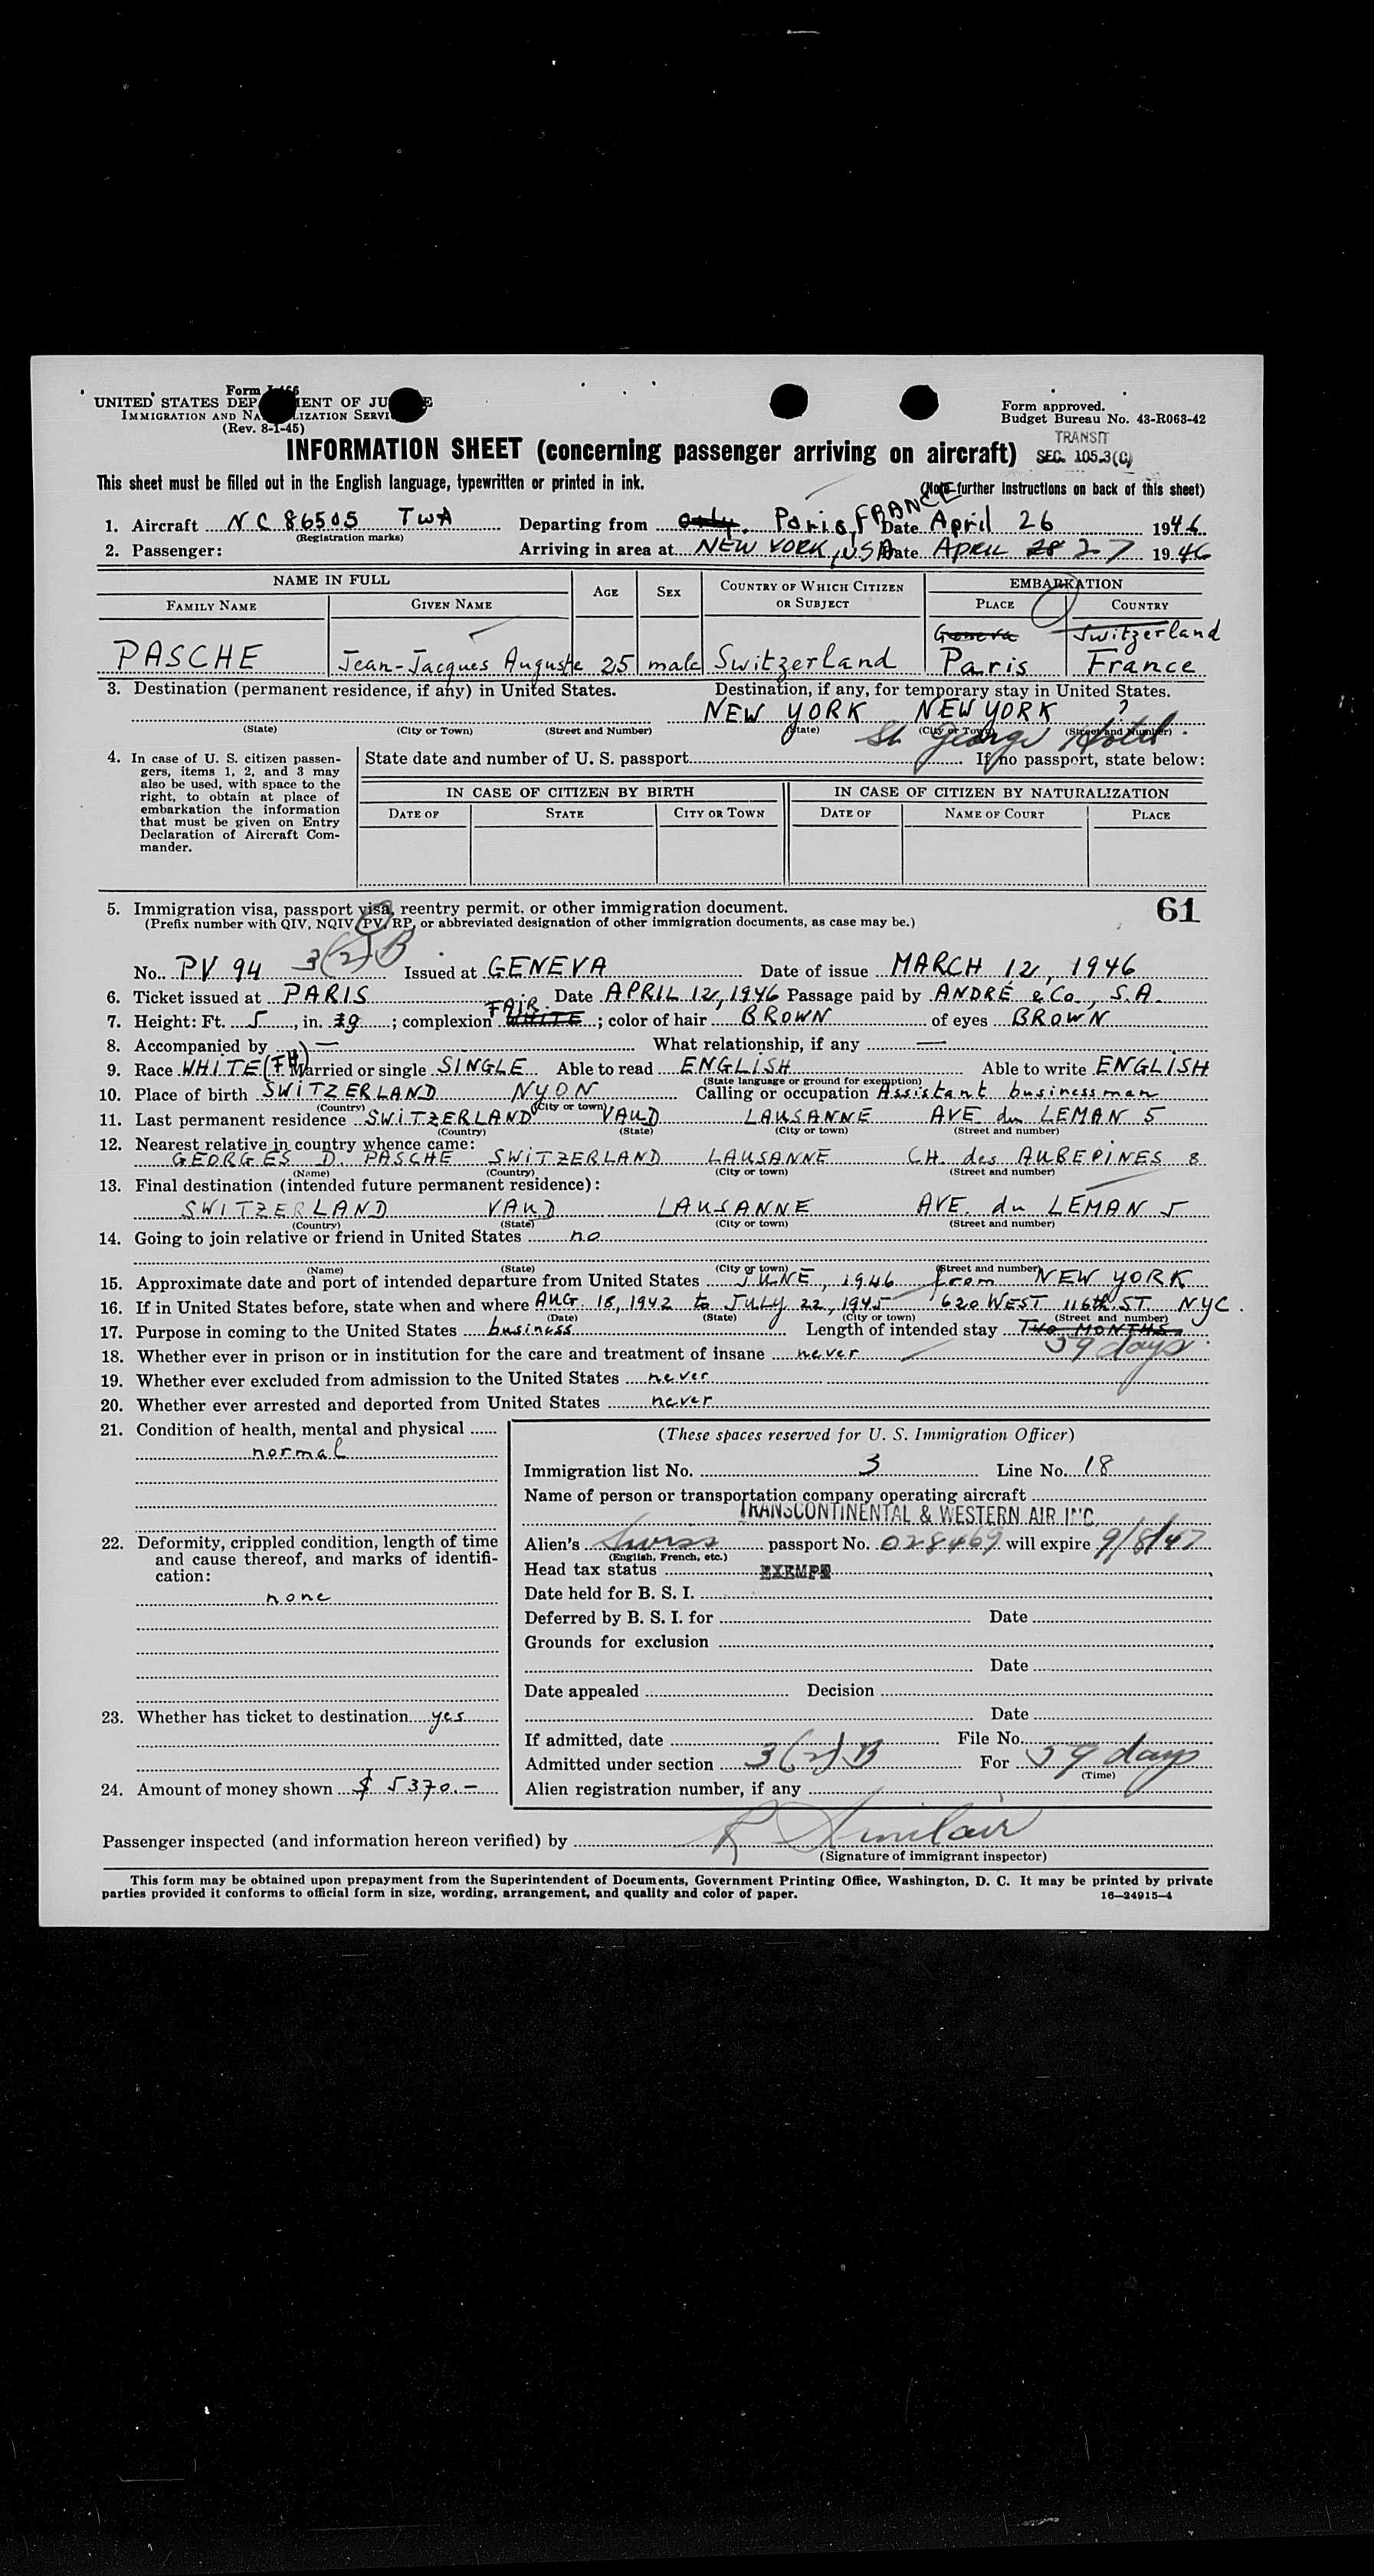 Form I-466
UNITED STATES DEPARTMENT OF JUSTICE
IMMIGRATION AND NATURALIZATION SERVICE
(Rev. 8-1-45)
Form approved.
Budget Bureau No. 43-R063-42
TRANSIT
SEC. 105.3(C)
INFORMATION SHEET (concerning passenger arriving on aircraft)
This sheet must be filled out in the English language, typewritten or printed in ink.
(Note further instructions on back of this sheet)
1. Aircraft NC 86505 TWA Departing from Paris, FRANCE Date April 26 1946
(Registration marks)
2. Passenger: Arriving in area at NEW YORK, USA Date APRIL 28 27 1946
NAME IN FULL AGE SEX COUNTRY OF WHICH CITIZEN OR SUBJECT EMBARKATION
FAMILY NAME GIVEN NAME PLACE COUNTRY
Geneva Switzerland
PASCHE Jean-Jacques Auguste 25 male Switzerland Paris France
3. Destination (permanent residence, if any) in United States. Destination, if any, for temporary stay in United States.
NEW YORK NEW YORK ?
(State) (City or Town) (Street and Number) (State) (City or Town) (Street and Number)
St George Hotel
4. In case of U. S. citizen passengers, items 1, 2, and 3 may also be used, with space to the right, to obtain at place of embarkation the information that must be given on Entry Declaration of Aircraft Commander.
State date and number of U. S. passport If no passport, state below:
IN CASE OF CITIZEN BY BIRTH IN CASE OF CITIZEN BY NATURALIZATION
DATE OF STATE CITY OR TOWN DATE OF NAME OF COURT PLACE
5. Immigration visa, passport visa, reentry permit, or other immigration document.
(Prefix number with QIV, NQIV, PV, RP, or abbreviated designation of other immigration documents, as case may be.)
61
No. PV 94 3(2)B Issued at GENEVA Date of issue MARCH 12, 1946
6. Ticket issued at PARIS Date APRIL 12, 1946 Passage paid by ANDRÉ & Co., S.A.
7. Height: Ft. 5, in. 9; complexion WHITE FAIR; color of hair BROWN of eyes BROWN
8. Accompanied by — What relationship, if any —
9. Race WHITE (FH) Married or single SINGLE Able to read ENGLISH Able to write ENGLISH
(State language or ground for exemption)
10. Place of birth SWITZERLAND NYON Calling or occupation Assistant businessman
(Country) (City or town)
11. Last permanent residence SWITZERLAND VAUD LAUSANNE AVE du LEMAN 5
(Country) (State) (City or town) (Street and number)
12. Nearest relative in country whence came:
GEORGES D. PASCHE SWITZERLAND LAUSANNE CH. des AUBEPINES 8
(Name) (Country) (City or town) (Street and number)
13. Final destination (intended future permanent residence):
SWITZERLAND VAUD LAUSANNE AVE. du LEMAN 5
(Country) (State) (City or town) (Street and number)
14. Going to join relative or friend in United States no
(Name) (State) (City or town) (Street and number)
15. Approximate date and port of intended departure from United States JUNE, 1946 from NEW YORK
16. If in United States before, state when and where AUG. 18, 1942 to JULY 22, 1945 620 WEST 116th. ST. NYC.
(Date) (State) (City or town) (Street and number)
17. Purpose in coming to the United States business Length of intended stay TWO MONTHS
59 days
18. Whether ever in prison or in institution for the care and treatment of insane never
19. Whether ever excluded from admission to the United States never
20. Whether ever arrested and deported from United States never
21. Condition of health, mental and physical
normal
22. Deformity, crippled condition, length of time and cause thereof, and marks of identification:
none
23. Whether has ticket to destination yes
24. Amount of money shown $ 5370.-
(These spaces reserved for U. S. Immigration Officer)
Immigration list No. 3 Line No. 18
Name of person or transportation company operating aircraft
TRANSCONTINENTAL & WESTERN AIR INC.
Alien's Swiss passport No. 028469 will expire 9/8/47
(English, French, etc.)
Head tax status EXEMPT
Date held for B. S. I.
Deferred by B. S. I. for Date
Grounds for exclusion
Date
Date appealed Decision
Date
If admitted, date File No.
Admitted under section 3(2)B For 59 days
(Time)
Alien registration number, if any
Passenger inspected (and information hereon verified) by R Sinclair
(Signature of immigrant inspector)
This form may be obtained upon prepayment from the Superintendent of Documents, Government Printing Office, Washington, D. C. It may be printed by private
parties provided it conforms to official form in size, wording, arrangement, and quality and color of paper.
16—24915-4